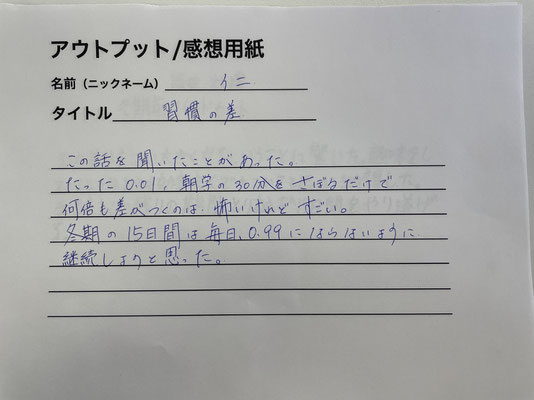 アウトプット/感想用紙
名前（ニックネーム） イニ
タイトル 習慣の差
この話を聞いたことがあった。
たった0.01、朝学の30分をさぼるだけで
何倍も差がつくのは、怖いけれどすごい。
冬期の15日間は毎日、0.99にはらはいように
継続しようと思った。